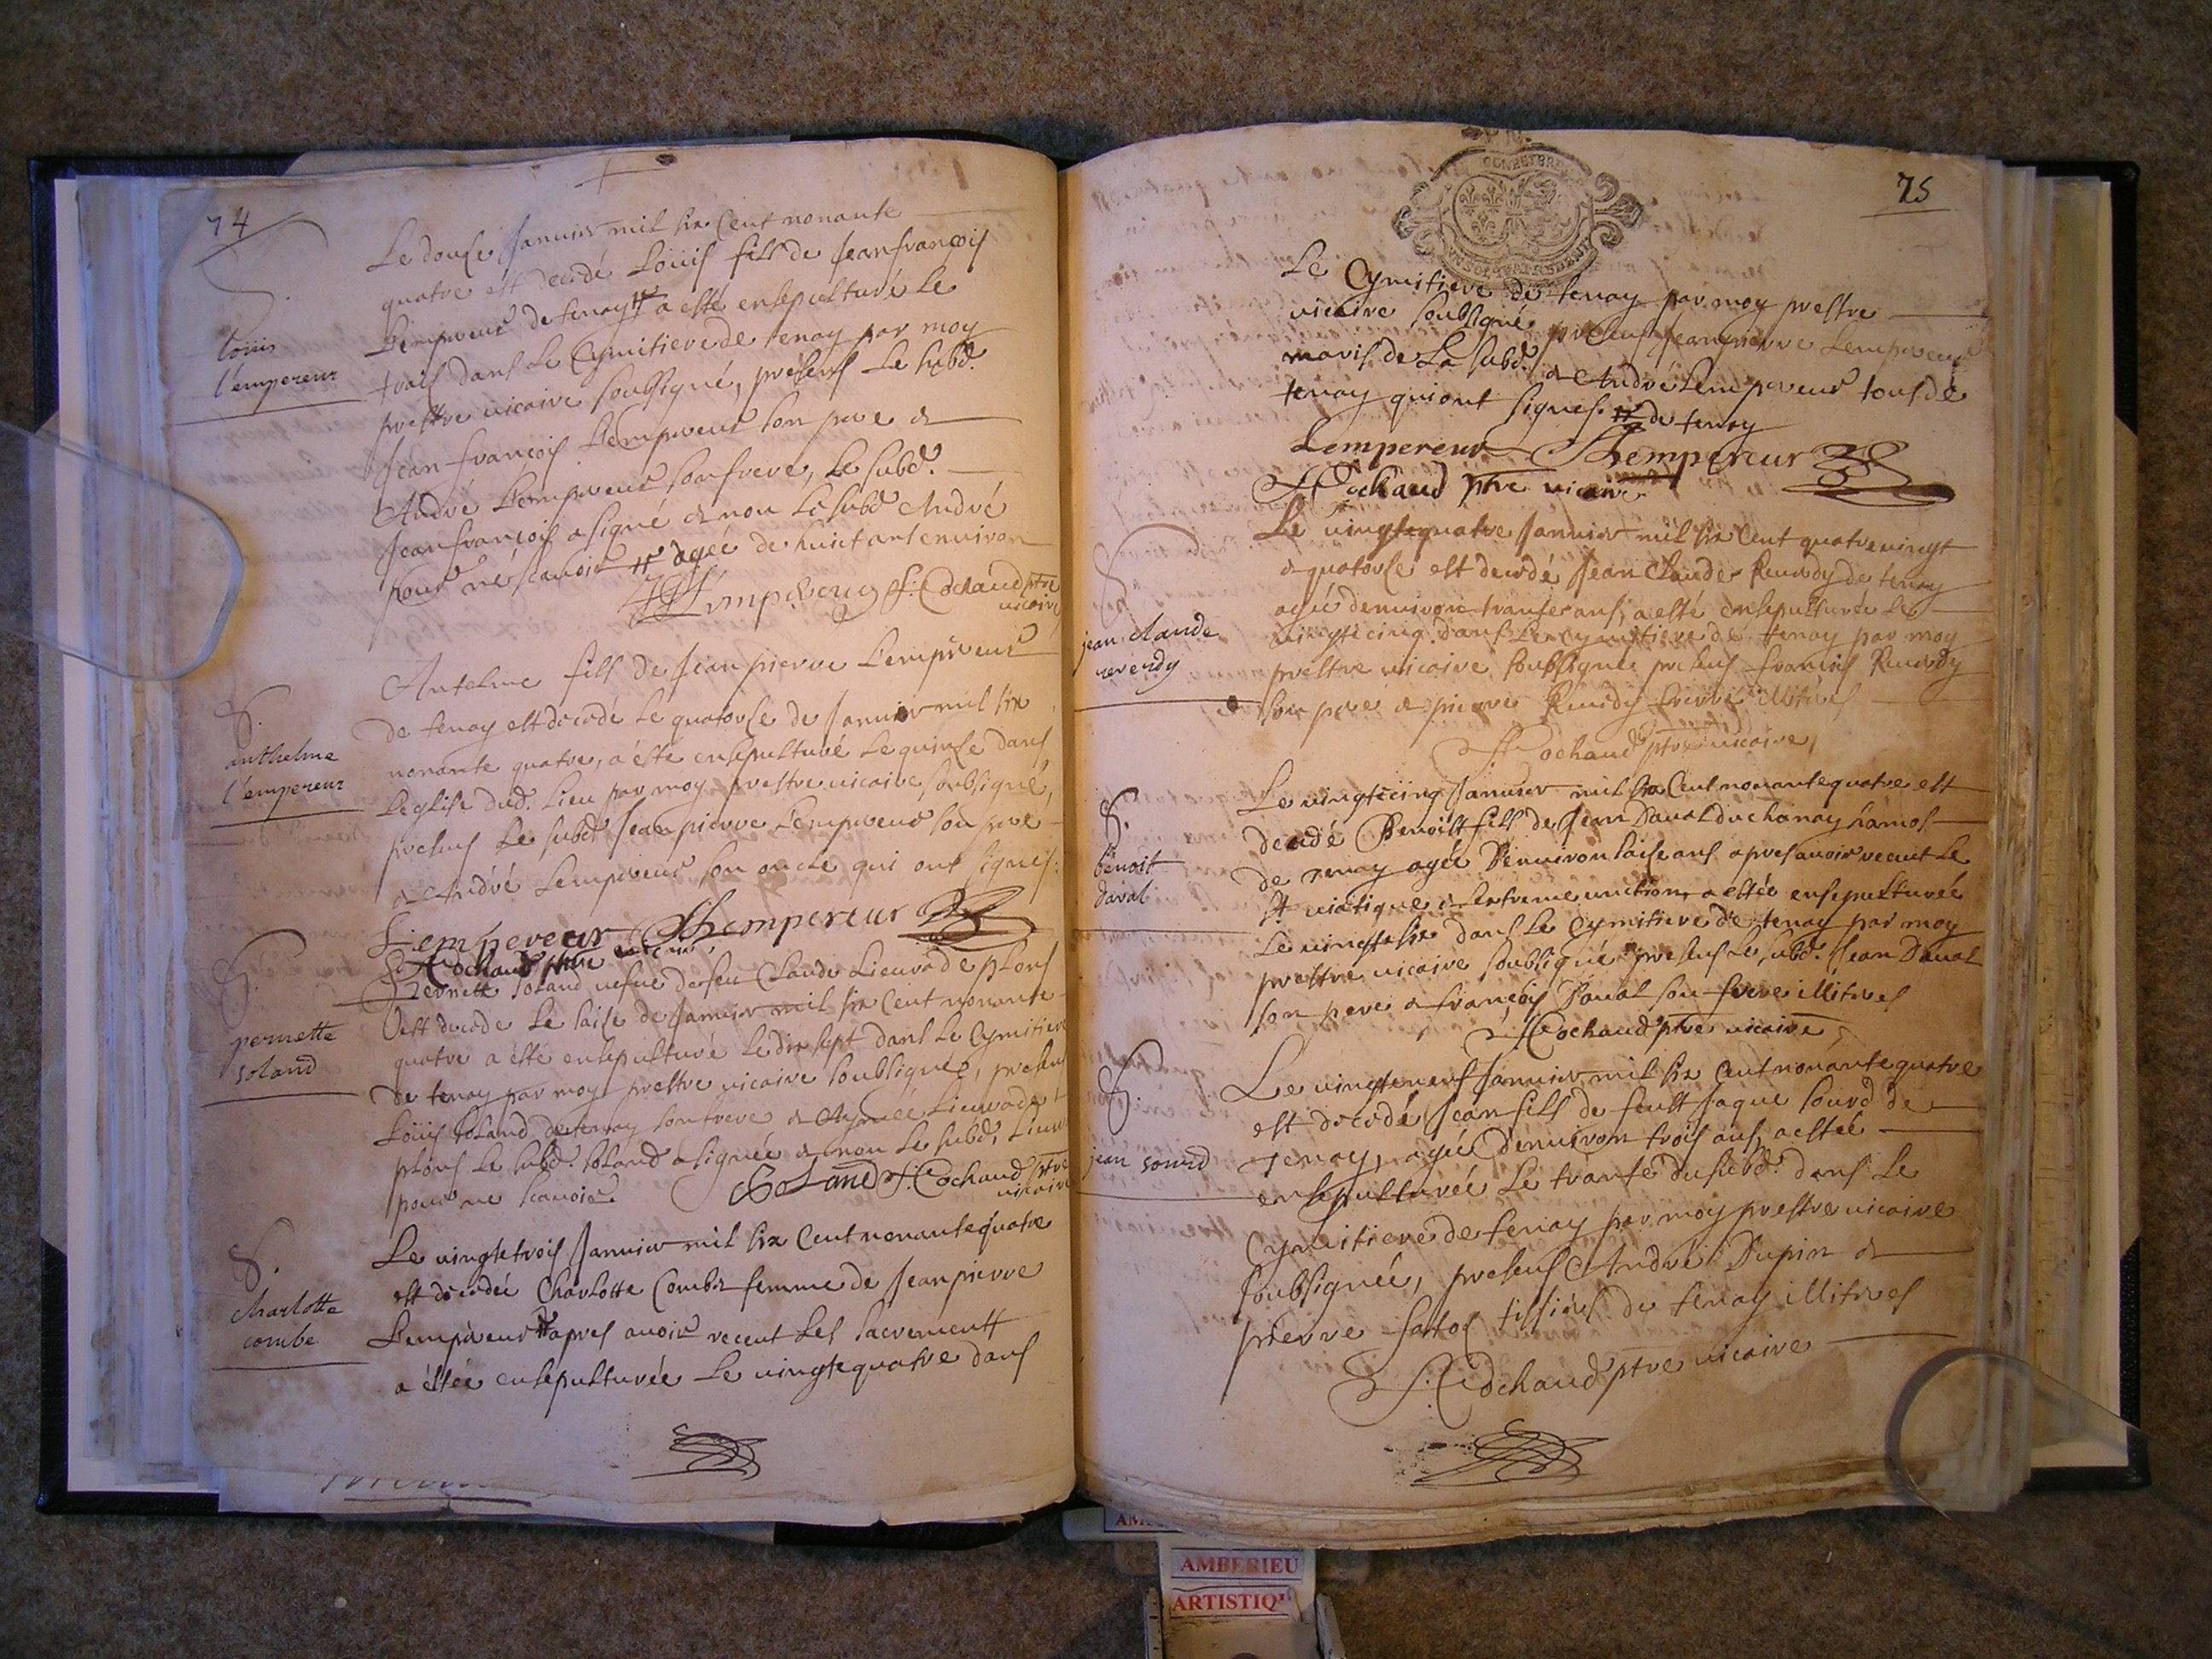 74
S.
louis
l'empereur
Le douse Januier mil six Cent nonante
quatre est decedé Loüis fils de Jeanfrançois
Lempereur de tenay # a esté ensepulturé le
trais dans le Cymitiere de tenay par moy
prestre uicaire soubsigné, presens le subd.
Jean françois Lempereur son pere &
André Lempereur son frere, le subd.
Jeanfrançois a signé & non le subd André
pour ne scauoir # agée de huict ans enuiron
Lempereur Cochand ptre
uicaire
S.
anthelme
l'empereur
Antelme fils de Jean pierre Lempereur
de tenay est decedé le quatorse de Januier mil six
nonante quatre, a esté ensepulturé le quinse dans
Leglise dud. Lieu par moy prestre uicaire soubsigné,
presens le subd Jean pierre Lempereur son pere
& André Lempereur son oncle qui ont signés.
Lempereur Lempereur
Cochand ptre uicaire
S.
pernette
soland
Pernette soland uefue de feu Claude Lieurade plons
est decede le saise de Januier mil six Cent nonante
quatre a esté ensepulturé le dix sept dans le Cymitiere
de tenay par moy prestre uicaire soubsignée, presens
Loüis soland de tenay son frere & Aymée Lieurade
plons le subd. soland a signée & non le subd. Lieura
pour ne scauoir. Soland Cochand ptre
uicaire
S.
charlotte
combe
Le uingtetrois Januier mil six Cent nonantequatre
est decedée Charlotte Combe femme de Jeanpierre
Lempereur # apres auoir receut les sacrements
a estée ensepulturée le uingtequatre dans
75
Le Cymitiere de tenay par moy prestre
uicaire soubsigné presens Jeanpierre Lempereur
maris de la subd. & André Lempereur tous de
tenay qui ont signés. # de tenay
Lempereur Lempereur
Cochand ptre uicaire
S.
jean claude
reverdy
Le uingtequatre Januier mil six Cent quatreuingt
& quatorse est decedé Jean Claude Reuerdy de tenay
agée denuiron transe ans, a esté ensepulturée le
uingtecinq dans le cymitiere de tenay par moy
prestre uicaire soubsignée presens francois Reuerdy
son pere & pierre Reuerdy frere illitres
Cochand ptre uicaire,
S.
benoit
daval
Le uingtecinq Januier mil six Cent nonantequatre est
decedé Benoist fils de Jean Daual du chanay hamos
de tenay agée Denuiron saise ans apres auoir receut le
st uiatique & Lextreme unction, a estée ensepulturée
Le uingtesix dans le Cymitiere de tenay par moy
prestre uicaire soubsigné presens le subd. Jean Daual
son pere & françois Daual son frere illitres
Cochand ptre uicaire
S.
jean sourd
Le uingteneuf Januier mil six Cent nonantequatre
est decedé Jean fils de feutt Jaque sourd de
tenay, agée Denuiron trois ans, a estée
ensepulturée Le trante du subd. dans le
Cymitiere de tenay par moy prestre uicaire
soubsignée, presens André Dupin &
pierre tissiers de tenay illitres
Cochand ptre uicaire
AMBERIEU
ARTISTIQ